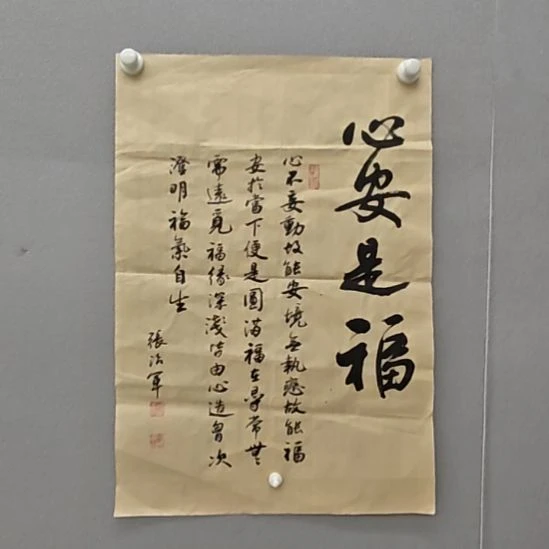 心安是福
心不妄動故能安境無執戀故能福
安於當下便是圓滿福在尋常無
需遠覓福緣深淺皆由心造胸次
澄明福氣自生
張治軍